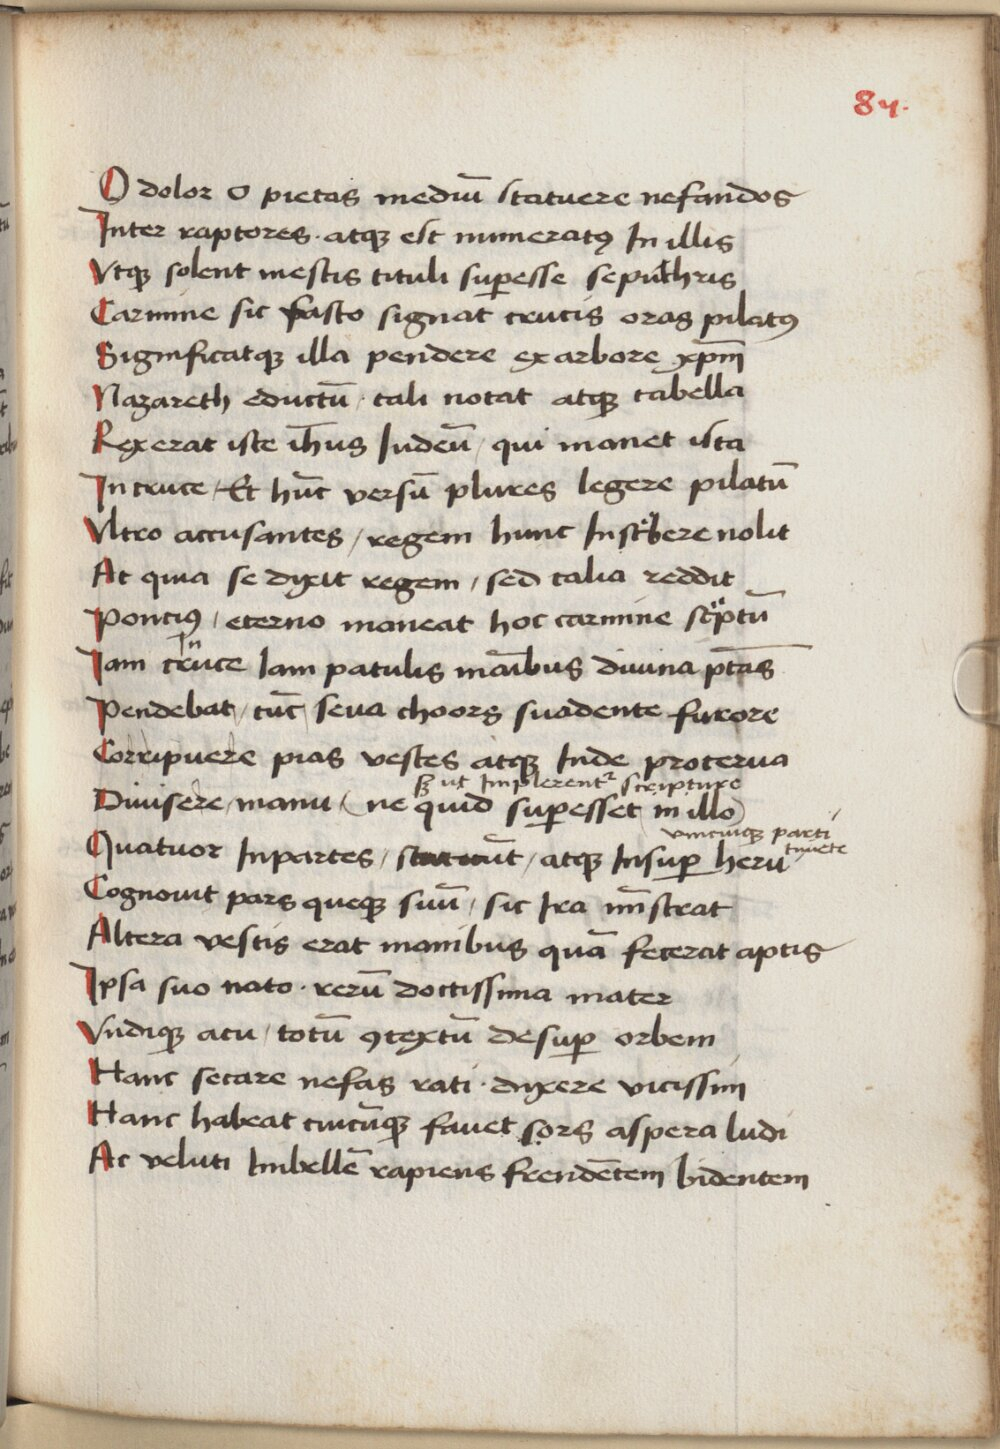 84.
O dolor o pietas mediū statuere nefandos
Inter raptores. atqꝫ est numeratꝰ In illis
Vtqꝫ solent mestis tituli suꝑesse sepulchris
Carmine sic fasto signat crucis oras pilatꝰ
Significatqꝫ illa pendere ex arbore xp̄m
Nazareth eductū / tali notat atqꝫ tabella
Rex erat iste ih̄us Iudeū / qui manet ista
In cruce / Et hūc versū plures legere pilatū
Vltro accusantes / regem hunc Inscͥbere nolit
At quia se dixit regem / sed talia reddit
Pontiꝰ / eterno maneat hoc carmine scͥptū
In
Iam cruce Iam patulis maībus diuina ptās
Pendebat / tūc seua choors suadente furore
Corripuere pias vestes atqꝫ Inde proterua
sꝫ ut Implerentᷣ scripture
Diuisere manu ( ne quid suꝑesset in illo )
vnicuiqꝫ parti
Quatuor In partes / / atqꝫ Insuꝑ heru
Cognouit pars queqꝫ suū / sic Ira mīstrat
Altera vestis erat manibus quā fecerat aptis
Ipsa suo nato. rerū doctissima mater
Vndiqꝫ acu / totū ꝯtextū desuꝑ orbem
Hanc secare nefas rati. dixere vicissim
Hanc habeat cuicūqꝫ fauet sors aspera ludi
Ac veluti Imbellē rapiens frendētem bidentem